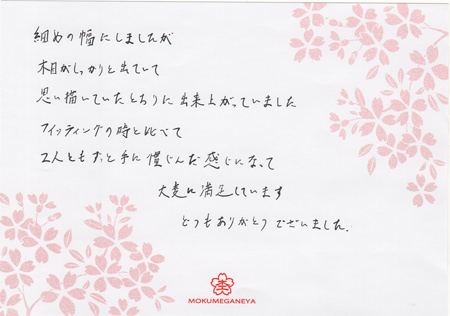 細めの幅にしましたが
木目がしっかりと出ていて
思い描いていたとおりに出来上がっていました
フィッティングの時と比べて
2人ともずっと手に慣じんだ感じになって
大変に満足しています
どうもありがとうございました.
MOKUMEGANEYA